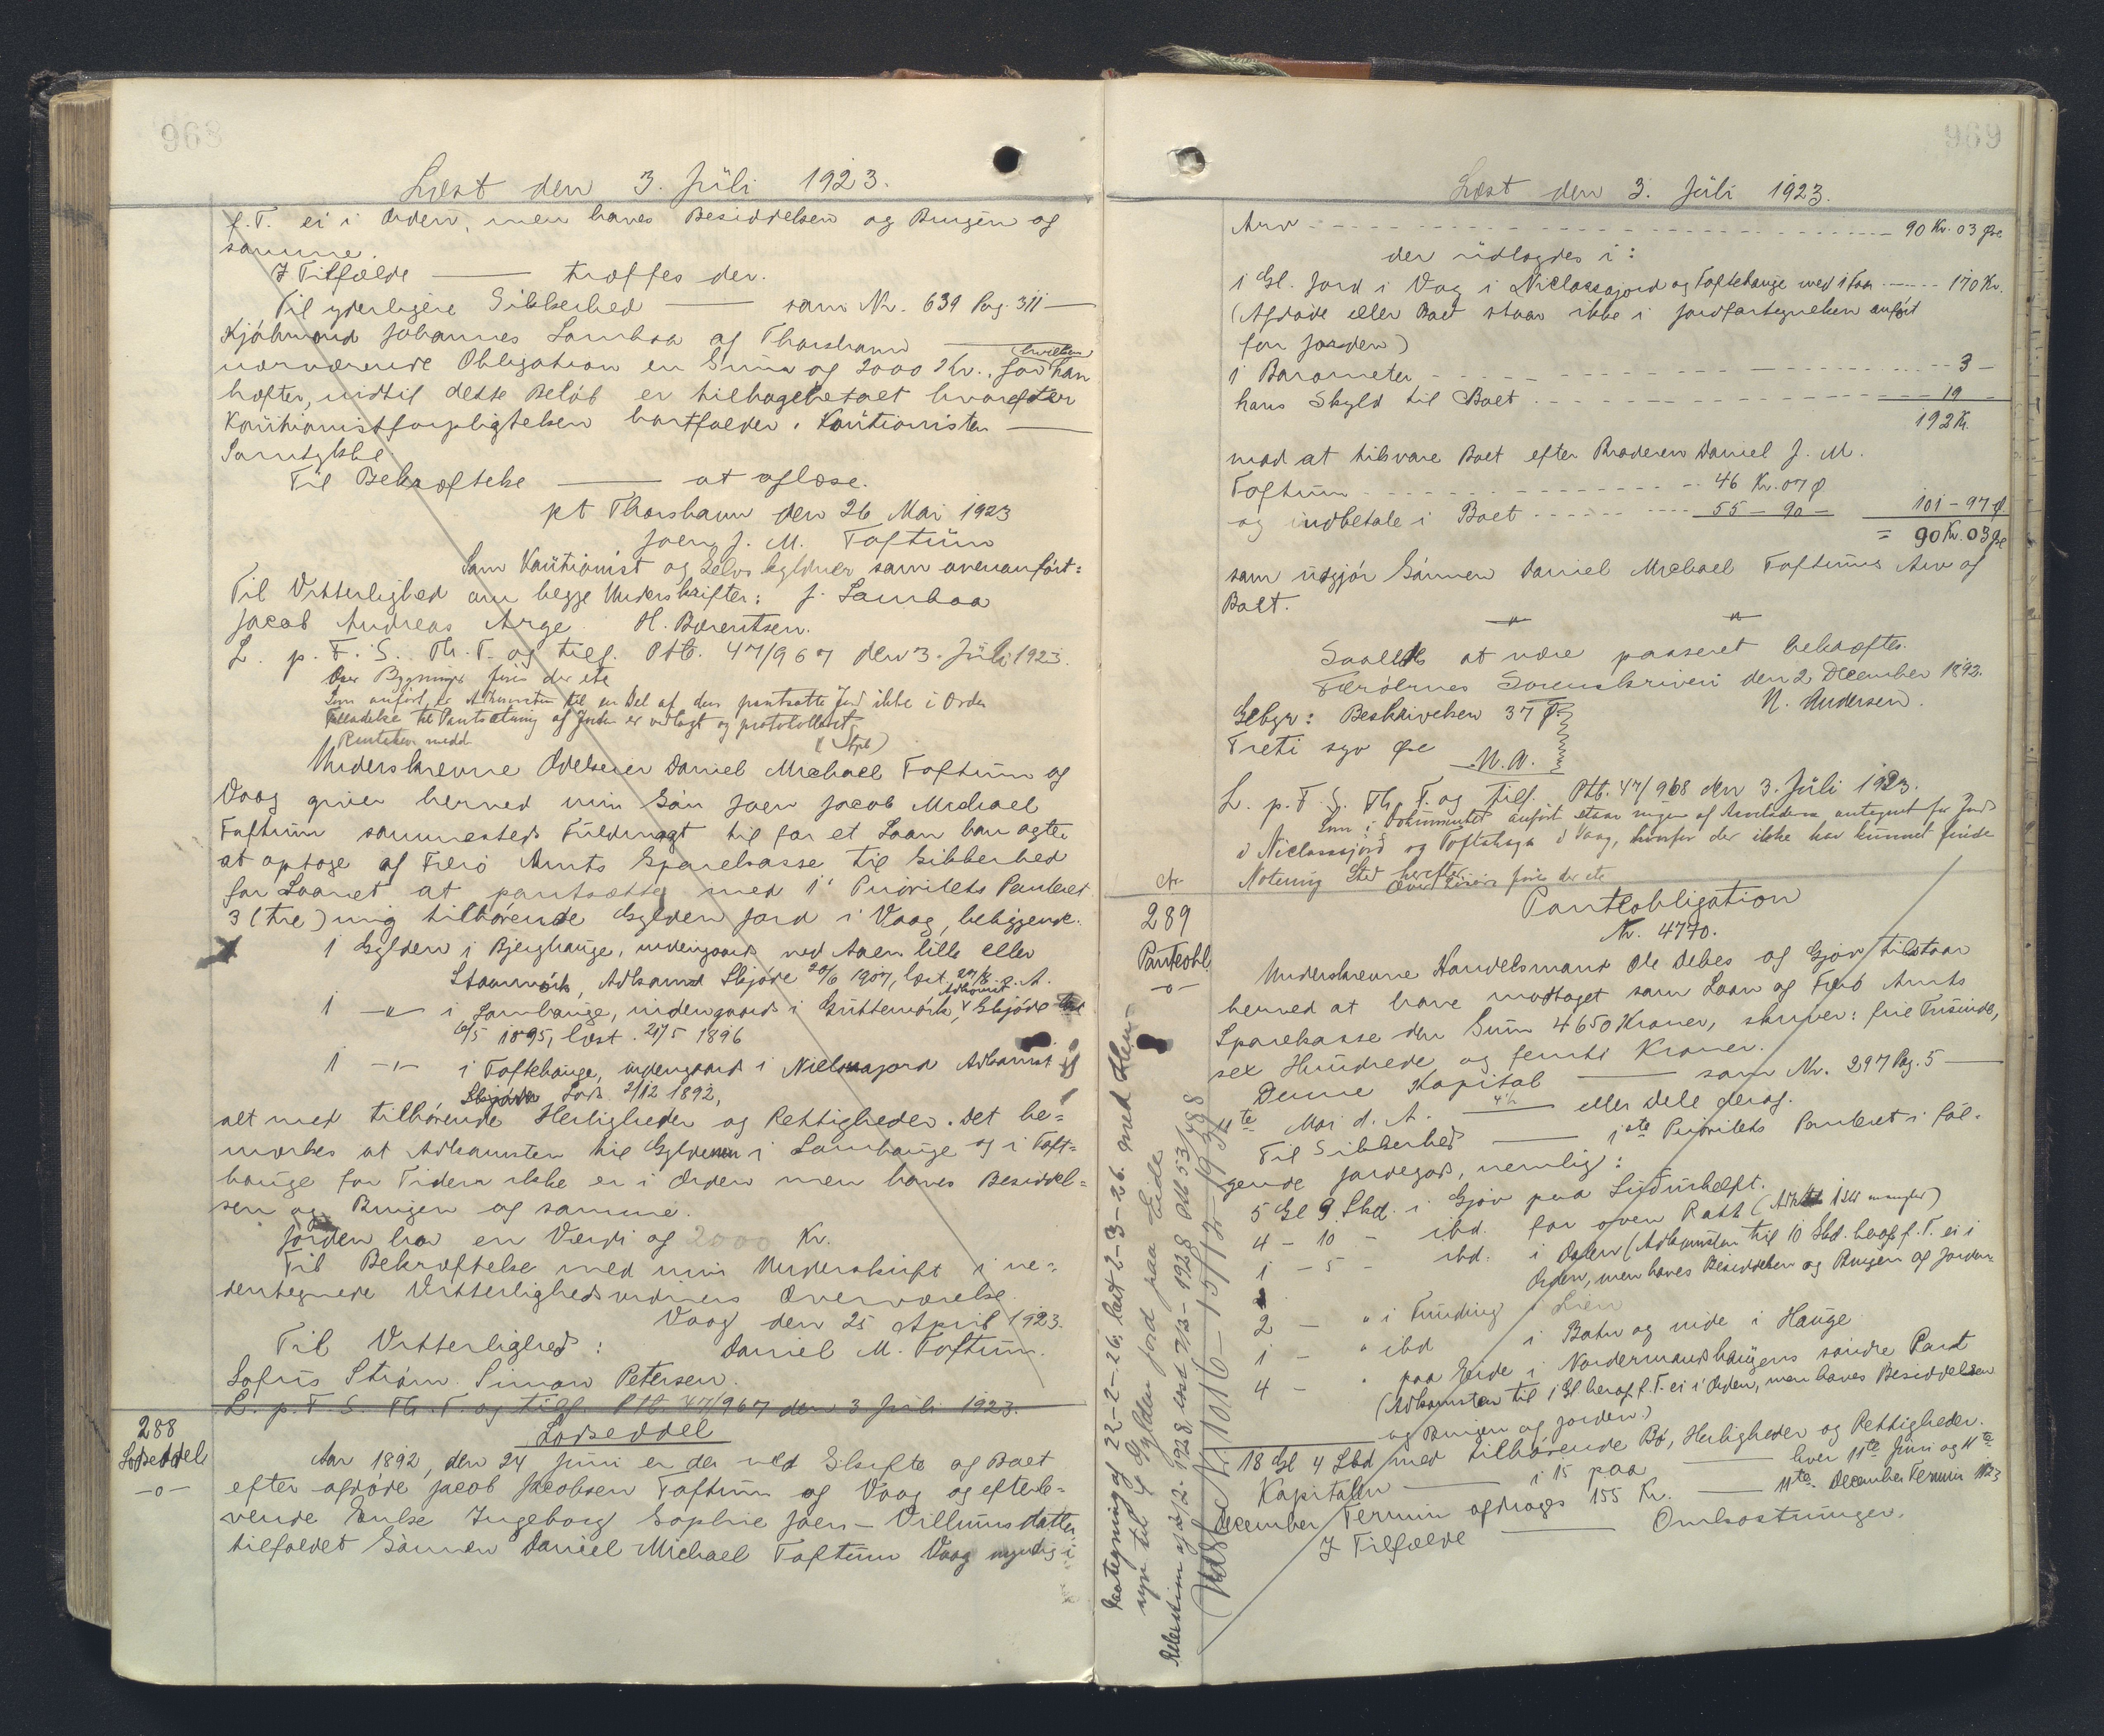 968
Læst den 3. Júli 1923.
f.T. ei i Orden, men haves Besiddelsen og Brugen af
samme.
I Tilfælde — træffes der.
Til yderligere Sikkerhed — som Nr. 639 Pag. 311 —
Kjøbmand Johannes Lamhaa af Thorshavn —
nærværende Obligation en Sum af 2000 Kr., for hvilken han
hæfter, indtil dette Beløb er tilbagebetalt hvorefter
Kautionistforpligtelsen bortfalder. Kautionisten —
Samtykke
Til Bekræftelse — at aflæse.
pt Thorshavn den 26 Mai 1923
Joen J. M. Toftum
Som Kautionist og Selvskyldner som ovenanført:
Til Vitterlighed om begge Underskrifter: J. Lamhaa
Jacob Andreas Arge H. Bærentsen.
L. p. F. S. Th. T. og tilf. Ptb. 47/967 den 3. Júli 1923.
Over Bygninger føres der ete
Som anført, er Adkomsten til en Del af den pantsatte Jord ikke i Orden
Tilladelse til Pantsætning af Jorden er vedlagt og protokolleret
Underskrevne Odelsejer Daniel Michael Toftum af
Vaag giver herved min Søn Joen Jacob Michael
Toftum sammesteds Fuldmagt til for et Laan han agter
at optage af Færø Amts Sparekasse til Sikkerhed
for Laanet at pantsætte med 1' Prioritets Panteret
3 (tre) mig tilhørende Gylden Jord i Vaag, beliggende:
1 Gylden i Bjerghauge, indengaards ved Aaen lille eller
Staarmørk, Adkomst Skjøde 20/6 1907, læst 27/6 s. A.
1 -"- i Lambhauge, indengaards i Guttemørk, Adkomst Skjøde
6/5 1895, læst 21/5 1896
1 -"- i Toftehauge, indengaards i Nielsajord Adkomst
Lods 2/12 1892,
alt med tilhørende Herligheder og Rettigheder. Det be=
mærkes at Adkomsten til Gylden i Lambhauge og i Toft=
hauge for Tiden ikke er i Orden men haves Besiddel=
sen og Brugen af samme.
Jorden har en Værdi af 2000 Kr.
Til Bekræftelse med min Underskrift i ne=
dentegnede Vitterlighedsvidners Overværelse.
Vaag den 25 April 1923.
Til Vitterlighed: Daniel M. Toftum.
Sofus Strøm. Simon Petersen.
L. p. F. S. Th. T. og tilf. Ptb 47/967 den 3 Juli 1923.
288
Lodseddel
-o-
Lodseddel
Aar 1892, den 24 Juni er der ved Skifte af Boet
efter afdøde Jacob Jacobsen Toftum af Vaag og efterle=
vende Enke Ingeborg Sophie Joen-Villumsdatter
tilfaldet Sønnen Daniel Michael Toftum Vaag myndig i
969
Læst den 3. Júli 1923.
Arv - - - 90 Kr. 03 Øre
der udlagdes i:
1 Gl. Jord i Vaag i Niclassajord og Toftehauge med 1 Faar --- 170 Kr.
(Afdøde eller Boet staar ikke i Jordfortegnelsen anført
for Jorden)
1 Barometer - - - 3 -
hans Skyld til Boet - - - 19 -
192 Kr.
mod at tilsvare Boet efter Broderen Daniel J. M.
Toftum - - - 46 Kr. 07 Ø
og indbetale i Boet - - - 55 - 90 - 101 - 97 Ø
= 90 Kr. 03 Øre
som udgjør Sønnen Daniel Michael Toftums Arv af
Boet.
Saaledes at være passeret bekræftes.
Færøernes Sorenskriveri den 2 December 1892.
N. Andersen.
Gebyr: Beskrivelsen 37 Ø.
Treti syv Øre
N. A.
L. p. F. S. Th. T. og tilf. Ptb. 47/968 den 3. Júli 1923.
Som i Dokumentet anført staar ingen af Arveladerne antegnet for Jord
i Niclassajord og Toftehaga i Vaag, hvorfor der ikke har kunnet finde
Notering Sted herefter.
Nr
289
Panteobl.
-o-
Panteobligation
Nr. 4770.
Underskrevne Handelsmand Ole Debes af Gjov tilstaar
herved at have modtaget som Laan af Færø Amts
Sparekasse den Sum 4650 Kroner, skriver: fire Tusinde,
sex Hundrede og femti Kroner.
Denne Kapital — som Nr. 297 Pag. 5 —
11te Mai d. A. — eller Dele deraf.
Til Sikkerhed — 1ste Prioritets Panteret i føl-
gende Jordegods, nemlig:
5 Gl 9 Skd. i Gjov paa Sudurhelft.
4 - 10 - ibd. for oven Rætt
1 - 5 - ibd. i Dalen (Adkomsten til 10 Skd. heraf f. T. ei i
Orden, men haves Besiddelsen og Brugen af Jorden
2 - " i Funding i Lien
1 - " ibd i Botn og inde i Hauge
4 - " paa Eide i Nordermandshaugens søndre Part
(Adkomsten til 1 Gl heraf f. T. ei i Orden, men haves Besiddelsen
og Brugen af Jorden.)
18 Gl 4 Skd med tilhørende Bø, Herligheder og Rettigheder.
Kapitalen — i 15 paa — hver 11te Juni og 11te
December Termin afdrages 155 Kr. — 11te December Termin 1923
I Tilfælde — Omkostninger.
Paategning af 22-2-26, læst 2-3-26 med Hen-
syn til 4 Gylden Jord paa Eide
1928 læst 2/3-1928 Ptb 53/488
Udsl. Nr. 1016 - 15/12-1931